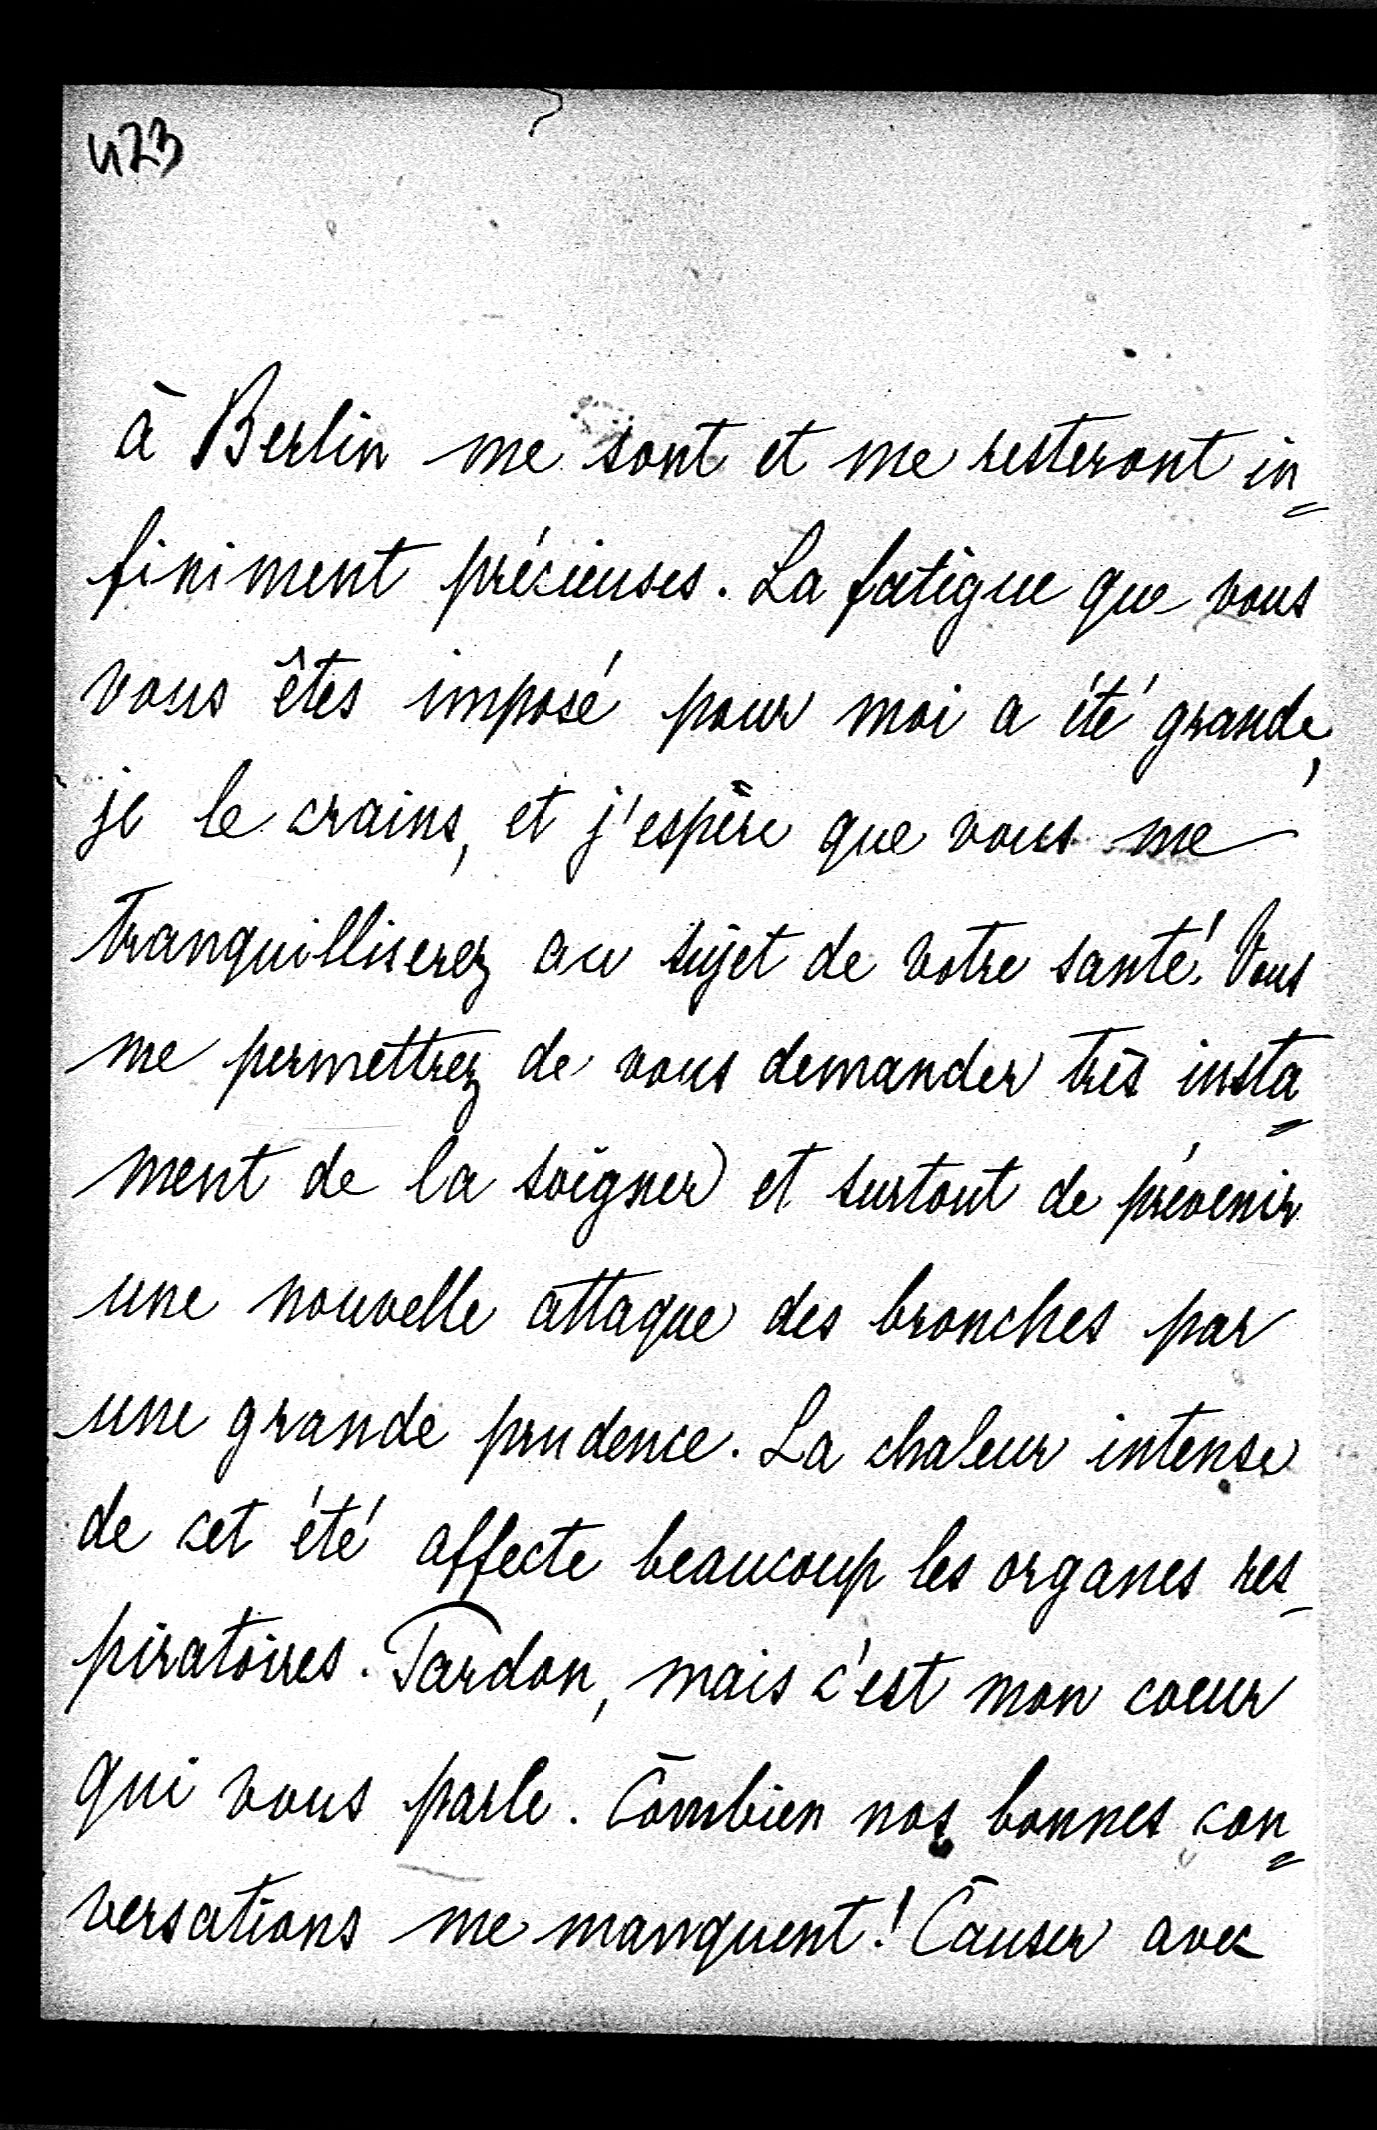 423
à Berlin me sont et me resteront in=
finiment précieuses. La fatigue que vous
vous êtes imposé pour moi a été grande,
je le crains, et j'espère que vous me
tranquilliserez au sujet de votre santé! Vous
me permettrez de vous demander très insta=
ment de la soigner et surtout de prévenir
une nouvelle attaque des bronches par
une grande prudence. La chaleur intense
de cet été affecte beaucoup les organes res-
piratoires. Pardon, mais c'est mon coeur
qui vous parle. Combien nos bonnes con=
versations me manquent! Causer avec